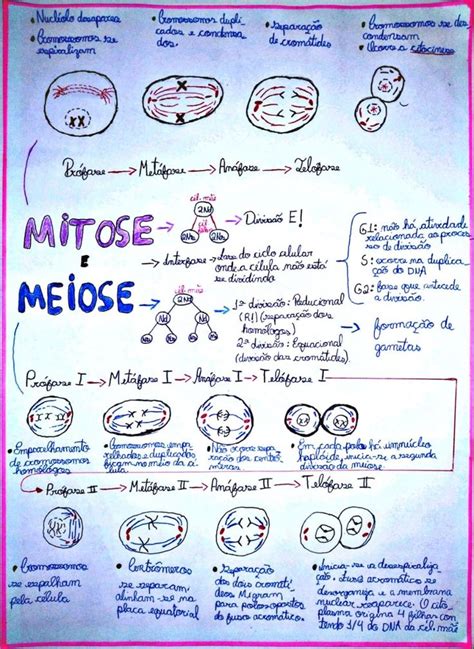 • Nucléolo desaparece
• Cromossomos se espiralizam
• Cromossomos duplicados e condensados.
• separação de cromátides
• Cromossomos se descondensam
• Ocorre a citocinese
Prófase → Metáfase → Anáfase → Telófase
MITOSE
E
MEIOSE
cél. mãe
2N
cél. filha
2N 2N
→ Divisão E!
→ Interfase → fase do ciclo celular
onde a célula não está
se dividindo
G1: não há atividade
relacionada ao processo
de divisão
S: ocorre a duplica
ção do DNA
G2: fase que antecede
a divisão.
cél. mãe
2N
N N
N N N N
1ª divisão: Reducional
(R!) (separação dos
homólogos)
2ª divisão: Equacional
(divisão das cromátides)
→ formação de
gametas
Prófase I → Metáfase I → Anáfase I → Telófase I
• Emparelhamento
de cromossomos
homólogos
• Cromossomos empa
relhados e duplicados
ficam no meio da cé
lula
• Não ocorre sepa
ração dos centrô
meros
• Em cada polo há um núcleo
haplóide, inicia-se a segunda
divisão da meiose.
→ Prófase II → Metáfase II → Anáfase II → Telófase II
• Cromossomos
se espalham
pela célula
• Centrômeros
se separam,
alinham-se na
placa equatorial
• Separação
das dois cromáti
des Migram
para polos opostos
do fuso acromático
• Inicia-se a desespiraliza
ção,
acromático se
desorganiza e a membrana
nuclear reaparece. O cito
plasma origina 4 filhas con
tendo 1/4 do DNA da cél. mãe